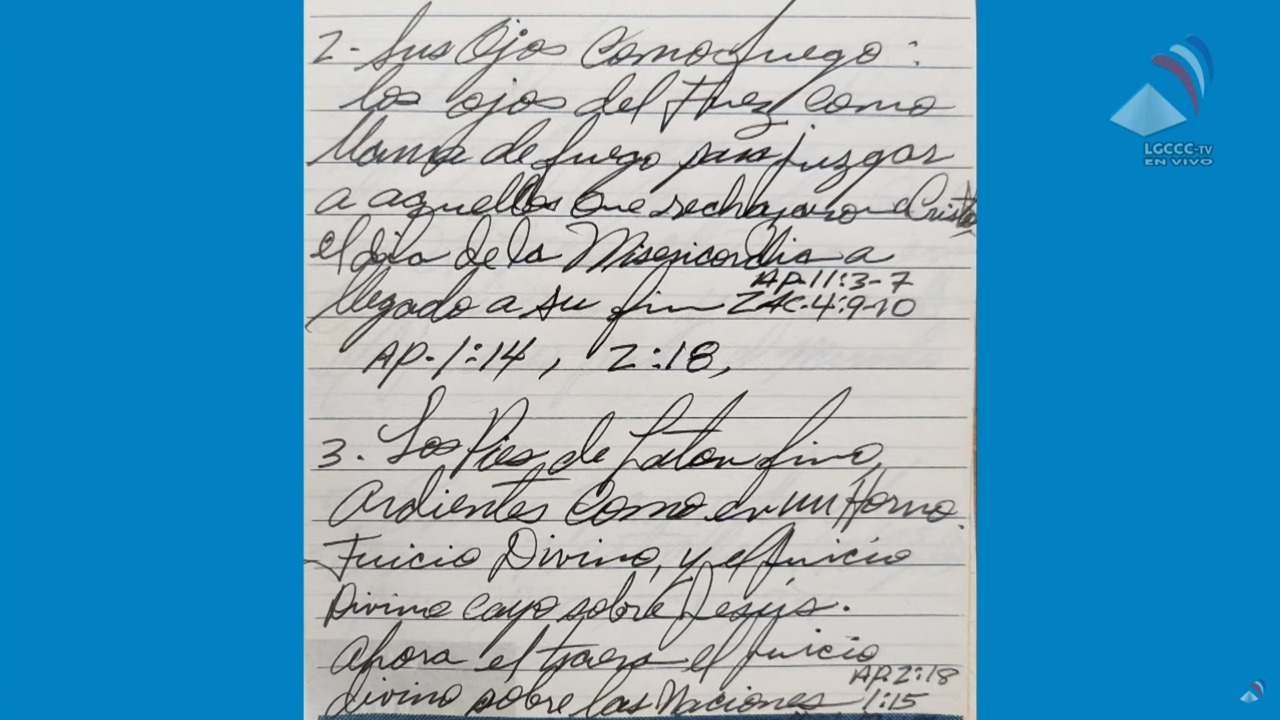 2- Sus Ojos Como fuego:
los ojos del Juez como
llama de fuego para juzgar
a aquellos que rechazaron a Cristo
el dia de la Misericordia a
AP-11:3-7
llegado a su fin ZAC-4:9-10
AP-1:14, 2:18,
3. Los Pies de Laton fino,
ardientes como en un Horno.
Juicio Divino, y el Juicio
Divino cayo sobre Jesús.
Ahora el traera el juicio
AP.2:18
divino sobre las Naciones 1:15
LGCCC-TV
EN VIVO